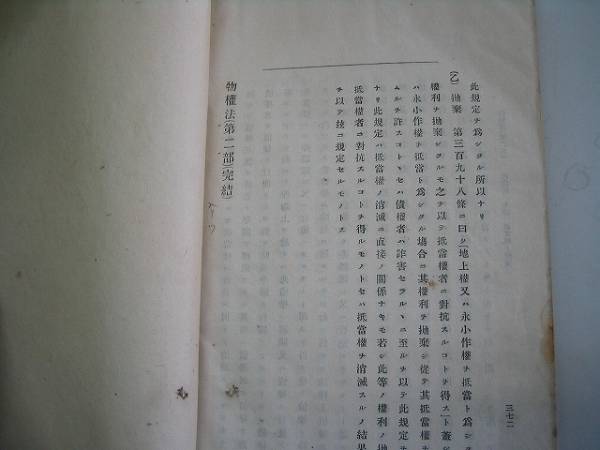 此規定ヲ爲シタル所以ナリ
(乙) 抛棄 第三百九十八條ニ曰ク「地上權又ハ永小作權ヲ抵當ト爲シタ
權利ヲ抛棄シタルモ之ヲ以テ抵當權者ニ對抗スルコトヲ得ス」ト蓋
ハ永小作權ヲ抵當ト爲シタル場合ニ其權利ヲ抛棄シ從テ其抵當權ヲ
ムルヲ許スコトトセハ債權者ハ詐害セラルヽニ至ルヲ以テ此規定ヲ
ナリ此規定ハ抵當權ノ消滅ニ直接ノ關係ナキモ若シ此等ノ權利ノ抛
抵當權者ニ對抗スルコトヲ得ルモノトセハ抵當權ヲ消滅スルノ結果
ヲ以テ玆ニ規定セルモノトス
物權法(第二部)完結
三七二